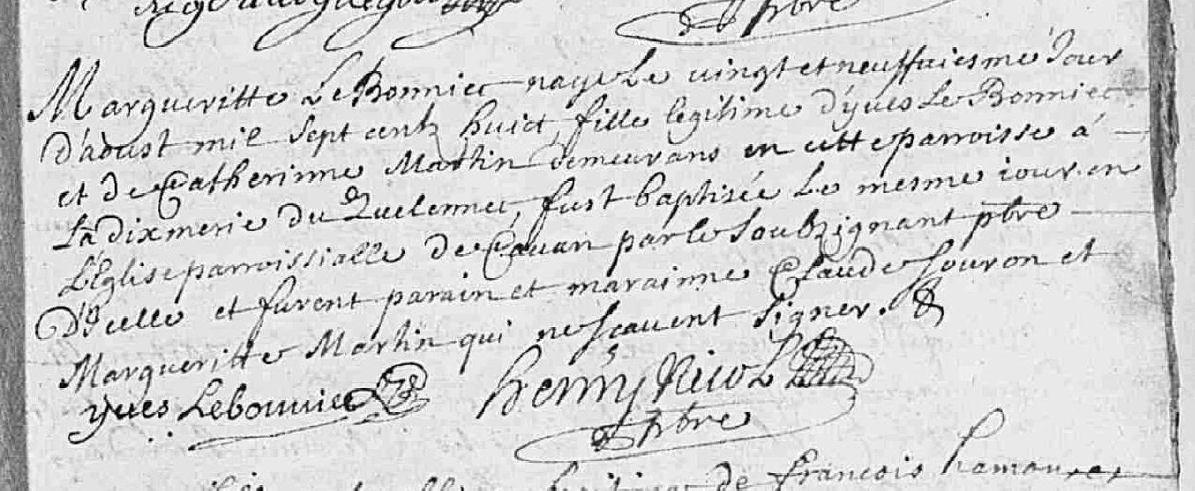 ptbre
Margueritte Le Bonniec naye Le vingt et neuffviesme Jour
D'aoust mil Sept centz huict, fille legitime d'yves Le Bonniec
et de Catherinne Martin demeurans en cette parroisse à
La dixmerie du Quelennec, fust baptisée Le mesme iour en
L'Eglise parroissialle de Cavan par le Soubzignant pbre
D'Icelle et furent parain et marainne Claude Souron et
Margueritte Martin qui ne scavent signer. &
yves Lebonniec henry Nicol
pbre
de francois hamon